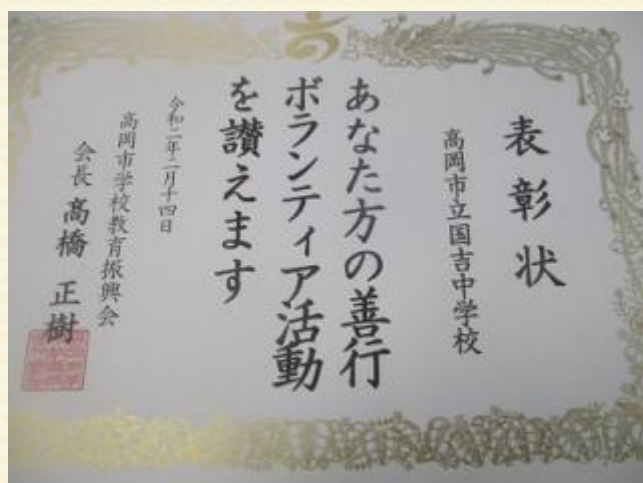 表彰状
高岡市立国吉中学校
あなた方の善行
ボランティア活動
を讃えます
令和二年二月十四日
高岡市学校教育振興会
会長 髙橋 正樹